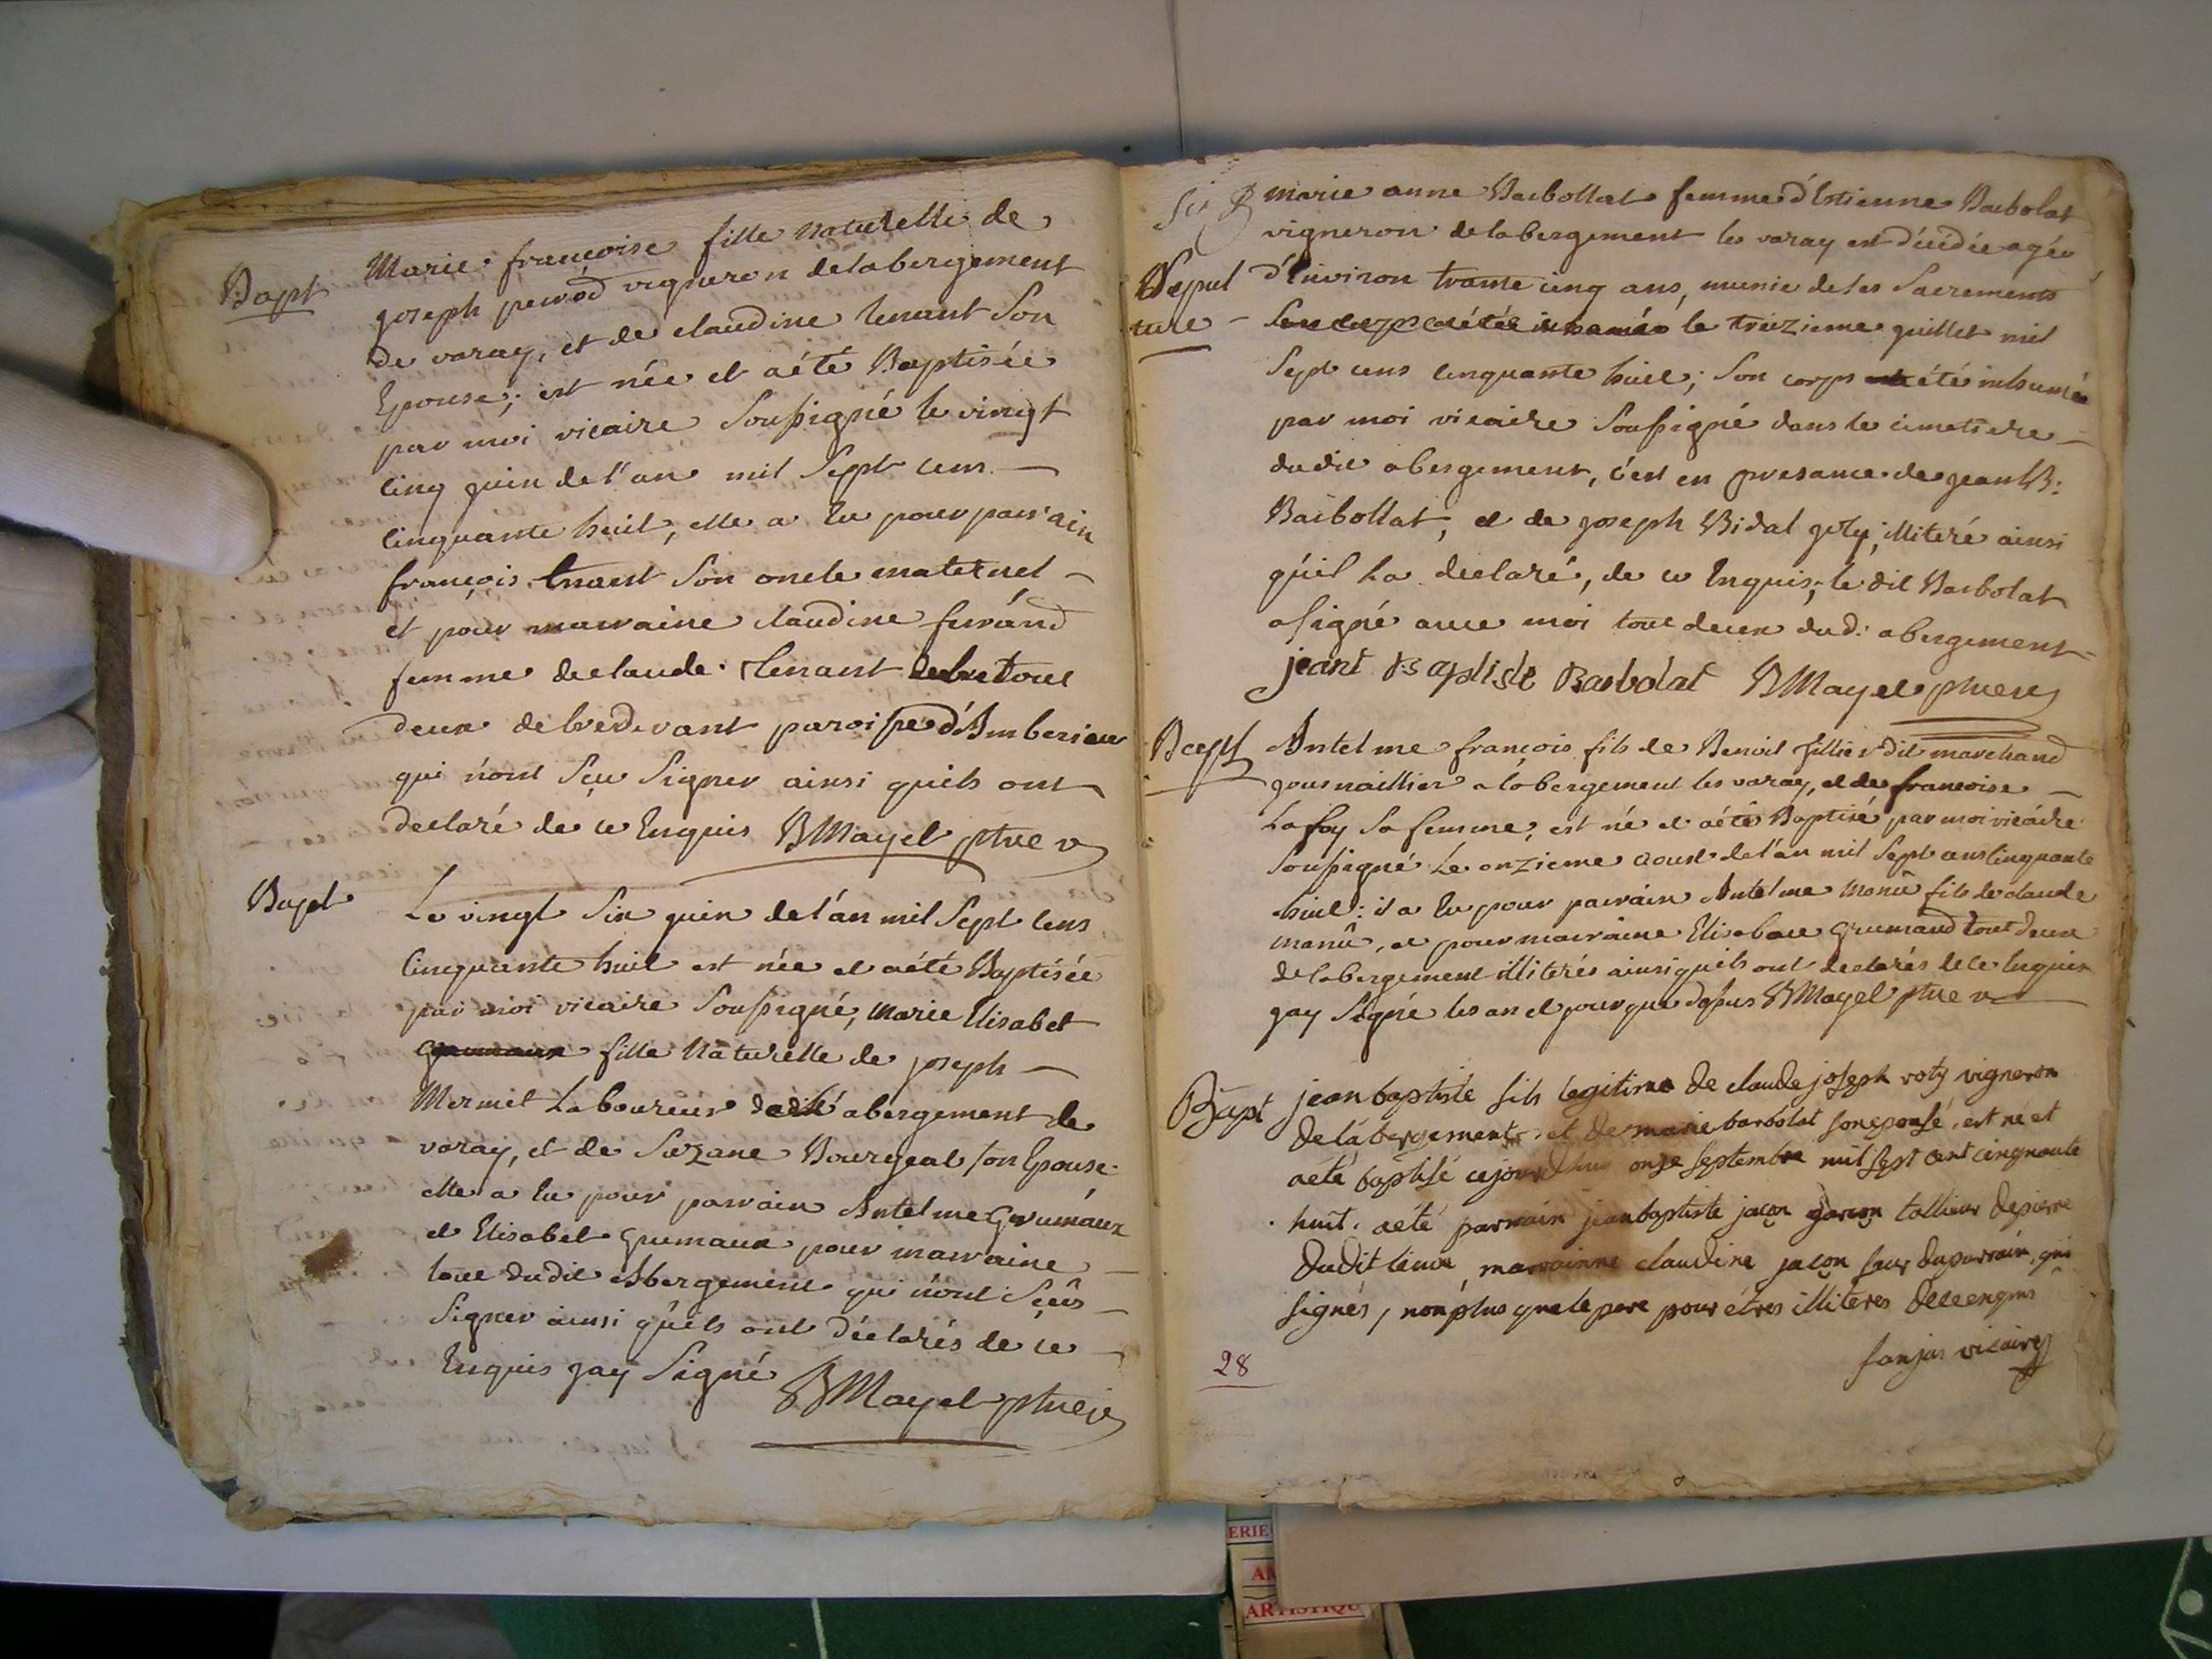 Bapt
Marie francoise fille naturelle de
joseph perrod vigneron delabergement
de varay, et de claudine tenant Son
Epouse; est née et aété Baptisée
par moi vicaire Soussigné le vingt
cinq juin de l'an mil Sept cens
cinquante huit, elle a Eu pour parrain
françois tnant Son oncle maternel
et pour marraine claudine ferrand
femme de claude tenant tout
deux de paroisse d'Amberieu
qui n'ont Sçu Signer ainsi quils ont
declaré de ce Enquis BMayet ptre v
Bapt
Le vingt Six juin de l'an mil Sept cens
Cinquante huit est née et aété Baptisée
par moi vicaire Soussigné, Marie Elisabet
grumaux fille Naturelle de joseph
Mermet Laboureur dudit abergement de
varay, et de Suzane Bourgeat son Epouse
elle a Eu pour parrain Antelme Grumaux
et Elisabet grumaux pour marraine
tout dudit Abergement qui n'ont Sçûs
Signer ainsi qu'ils ont déclarés de ce
Enquis jay Signé
BMayet ptre v
Sepul
ture
marie anne Barbollat femme d'Estienne Barbolat
vigneron delabergement les varay est décédée agée
d'Environ trante cinq ans, munie de ses Sacrements
Son corps aétée inhamée le treizieme juillet mil
Sept cens cinquante huit; Son corps été inhumée
par moi vicaire Soussigné dans le cimetiere
dudit abergement, c'est en presance de jean B:
Barbollat, et de joseph Bidal goty, illiteré ainsi
qu'il La declaré, de ce Enquis, le dit Barbolat
a Signé avec moi tout deux dud: abergement
jeant Baptiste Barbolat BMayet ptre v
Bapt
Antelme françois fils de Benoit fillier dit marchand
journaillier a labergement les varay, et de francoise
Lafoy Sa femme, est né et aété Baptisé par moi vicaire
Soussigné Le onzieme aoust de l'an mil Sept cens Cinquante
huit: il a Eu pour parrain Antelme manû fils de claude
manû, et pour marraine Elisabet grumaud tout deux
de labergement illiterés ainsi quils ont declarés de ce Enquis
jay Signé les an et jour que dessus BMayet ptre v
Bapt
jean baptiste fils legitime de claude joseph roty vigneron
de labergement et de marie barbolat son epouse, est né et
aeté baptisé cejourdhuy onze septembre mil sept cent cinquante
huit. aeté parrain jean baptiste jacon garçon tallieur de pierre
dudit lieux, marrainne claudine jacon sœur du parrain, qui
signés, non plus que le pere pour étres illiteres de ce enquis
fanjas vicaire
28
ERIE
ARTISTIQU